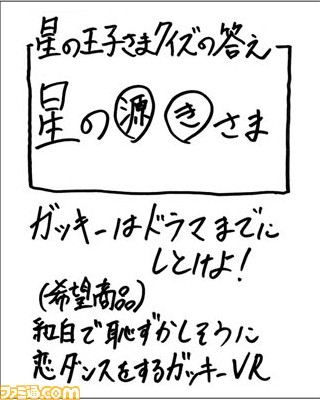 星の王子さまクイズの答え
星の源きさま
ガッキーはドラマまでに
しとけよ!
(希望商品)
紅白で恥ずかしそうに
恋ダンスをするガッキーVR
ファミ通.com